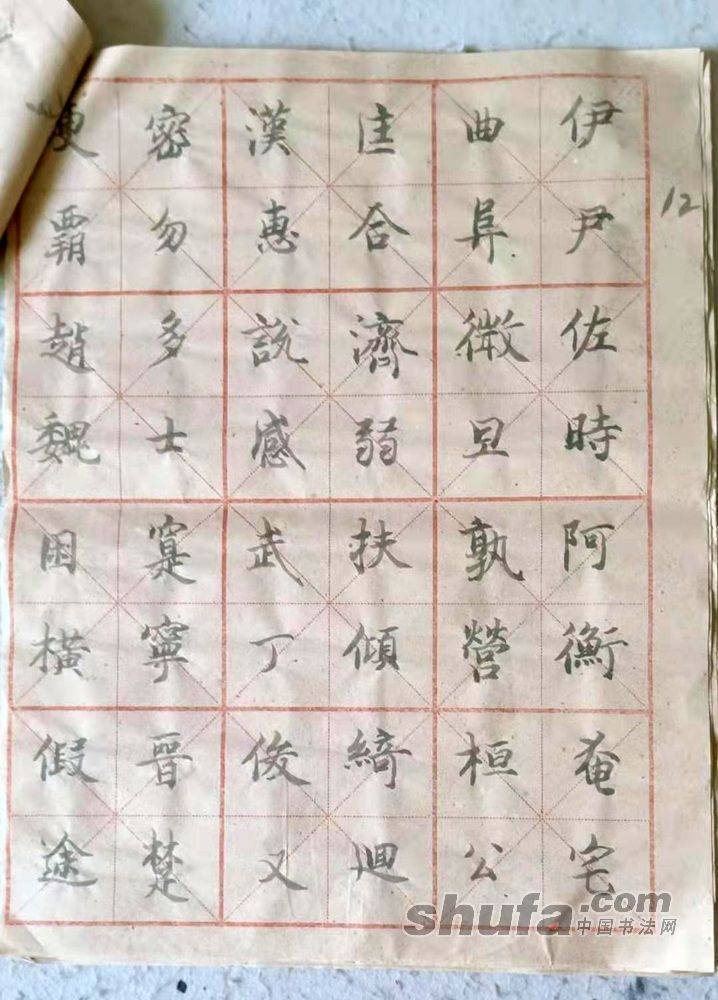 伊尹佐時阿衡奄宅
曲阜微旦孰營桓公
匡合濟弱扶傾綺迴
漢惠說感武丁俊乂
密勿多士寔寧晉楚
更霸趙魏困橫假途
12
shufa.com
中国书法网